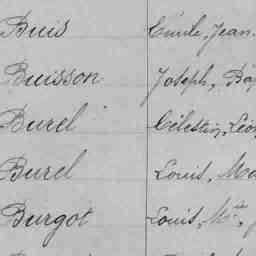 Buis Emile, Jean.
Buisson Joseph, Bap
Burel Célestin, Léon
Burel Louis, Ma
Burgot Louis, Mie,